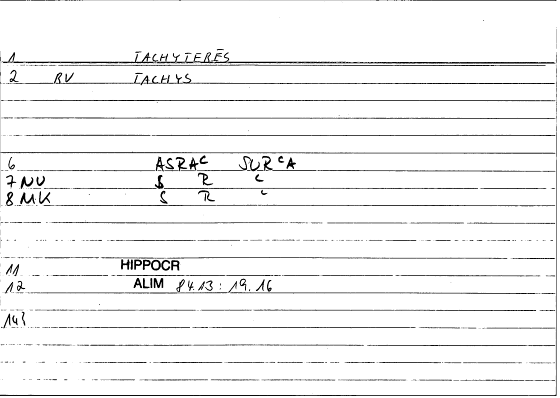 1 TACHYTERĒS
2 RV TACHYS
6 ASRAᶜ SURᶜA
7 NV S R ᶜ
8 MK S R ᶜ
11 HIPPOCR
12 ALIM 84.13 : 19.16
14